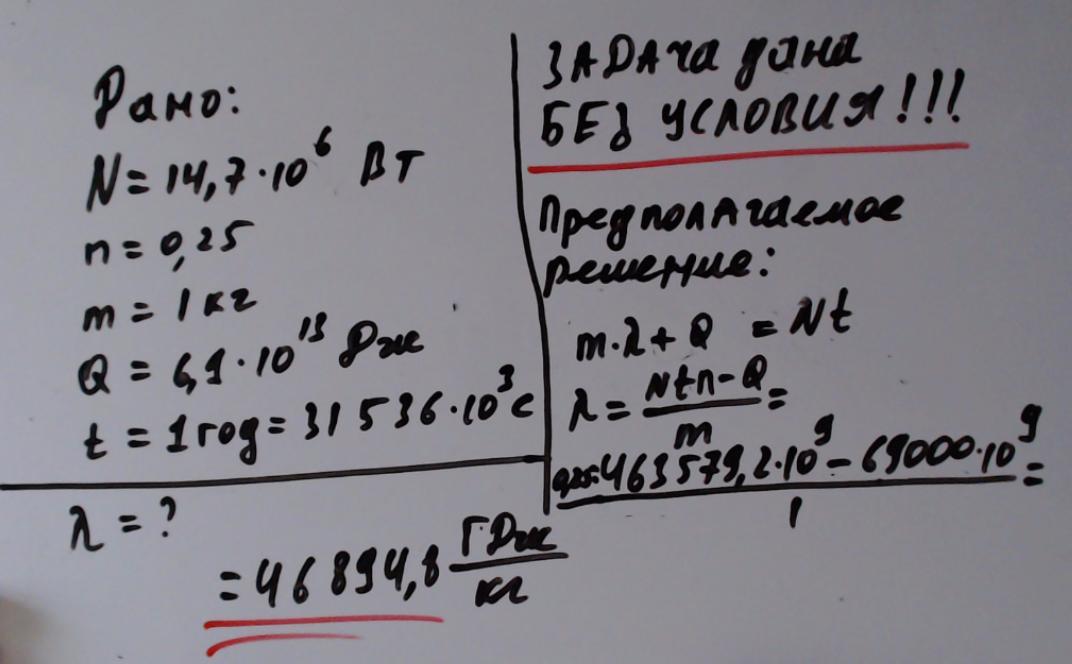 Дано:
N = 14,7·10⁶ Вт
n = 0,25
m = 1 кг
Q = 6,9·10¹³ Дж
t = 1 год = 31 536·10³ с
λ = ?
ЗАДАча дана
БЕЗ УСЛОВИЯ!!!
Предполагаемое
решение:
m·λ + Q = Nt
λ = (Ntn - Q)/m =
463579,2·10⁹ - 69000·10⁹ =
1
= 46894,8 ГДж/кг